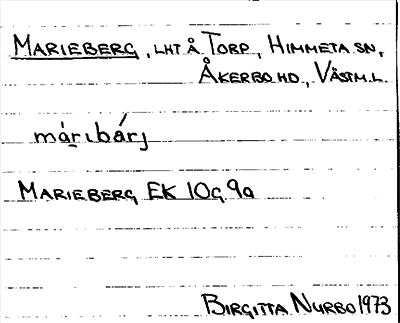 MARIEBERG, LHT Å TORP, HIMMETA SN,
ÅKERBO HD., VÄSTM.L.
márıbárj
MARIEBERG EK 10G 9a
BIRGITTA NURBO 1973